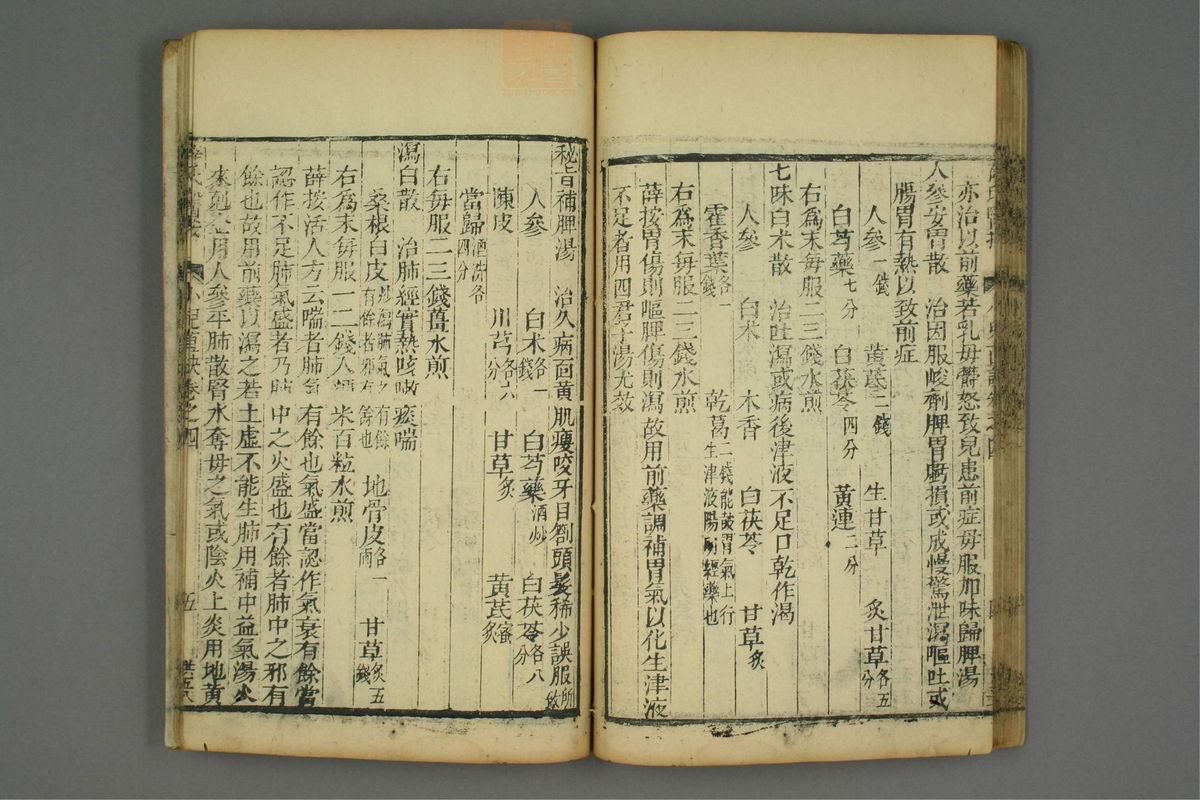 亦治以前藥若乳母鬱怒致兒患前症母服加味歸脾湯
人參安胃散　治因服峻劑脾胃虧損或成慢驚泄瀉嘔吐或
腸胃有熱以致前症
人參一錢　黃芪二錢　生甘草　炙甘草各五分
白芍藥七分　白茯苓四分　黃連二分
右爲末每服二三錢水煎
七味白术散　治吐瀉或病後津液不足口乾作渴
人參　白术　木香　白茯苓　甘草炙
霍香葉各錢　乾葛二錢能鼓胃氣上行生津液陽明經藥也
右爲末每服二三錢水煎
薛按胃傷則嘔脾傷則瀉故用前藥調補胃氣以化生津液
不足者用四君子湯尤效
秘旨補脾湯　治久病面黃肌瘦咬牙目劄頭髮稀少誤服所致
人參　白术各一錢　白芍藥酒炒　白茯苓各八分
陳皮　川芎各六分　甘草炙　黃芪蜜炙
當歸酒洗各四分
右每服二三錢薑水煎
瀉白散　治肺經實熱咳嗽痰喘
桑根白皮炒瀉肺氣之有餘者邪有有餘餘也　地骨皮各一兩　甘草炙五錢
右爲末每服一二錢入粳米百粒水煎
薛按活人方云喘者肺氣有餘也氣盛當認作氣衰有餘當
認作不足肺氣盛者乃肺中之火盛也有餘者肺中之邪有
餘也故用前藥以瀉之若土虛不能生肺用補中益氣湯火
來尅金用人參平肺散腎水奪母之氣或陰火上炎用地黃
小兒直訣卷之四
五